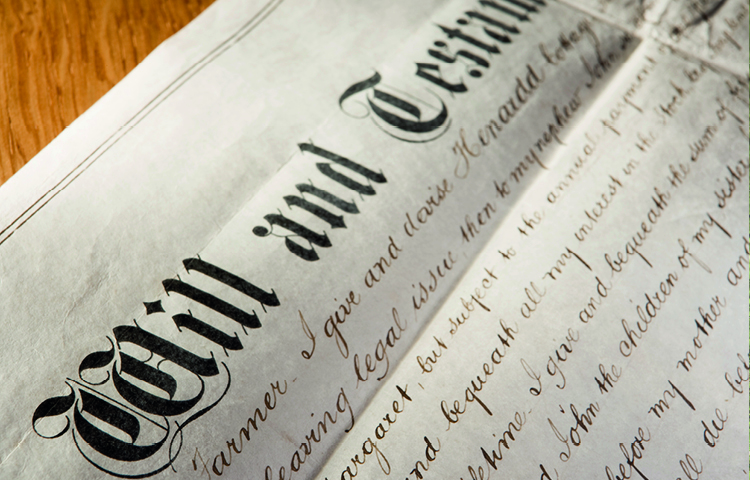 Will and Testam
Farmer. I give and devise Henardd Cottag
leaving legal issue then to my nephew John
argaret, but subject to the annual payment
and bequeath all my interest in the stock
lifetime. I give and bequeath the sum of
d John the children of my sister
before my mother and
all die bef